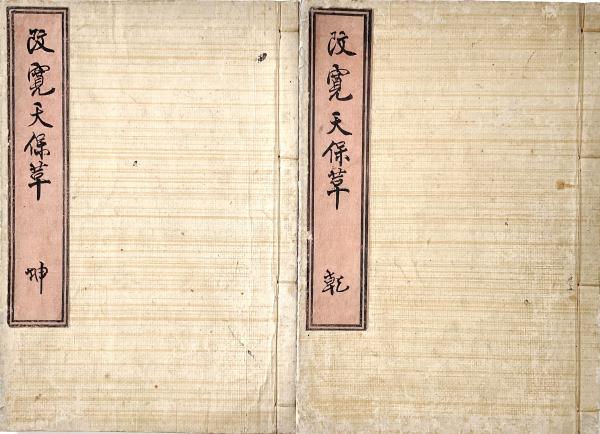 改寛天保草 乾
改寛天保草 坤